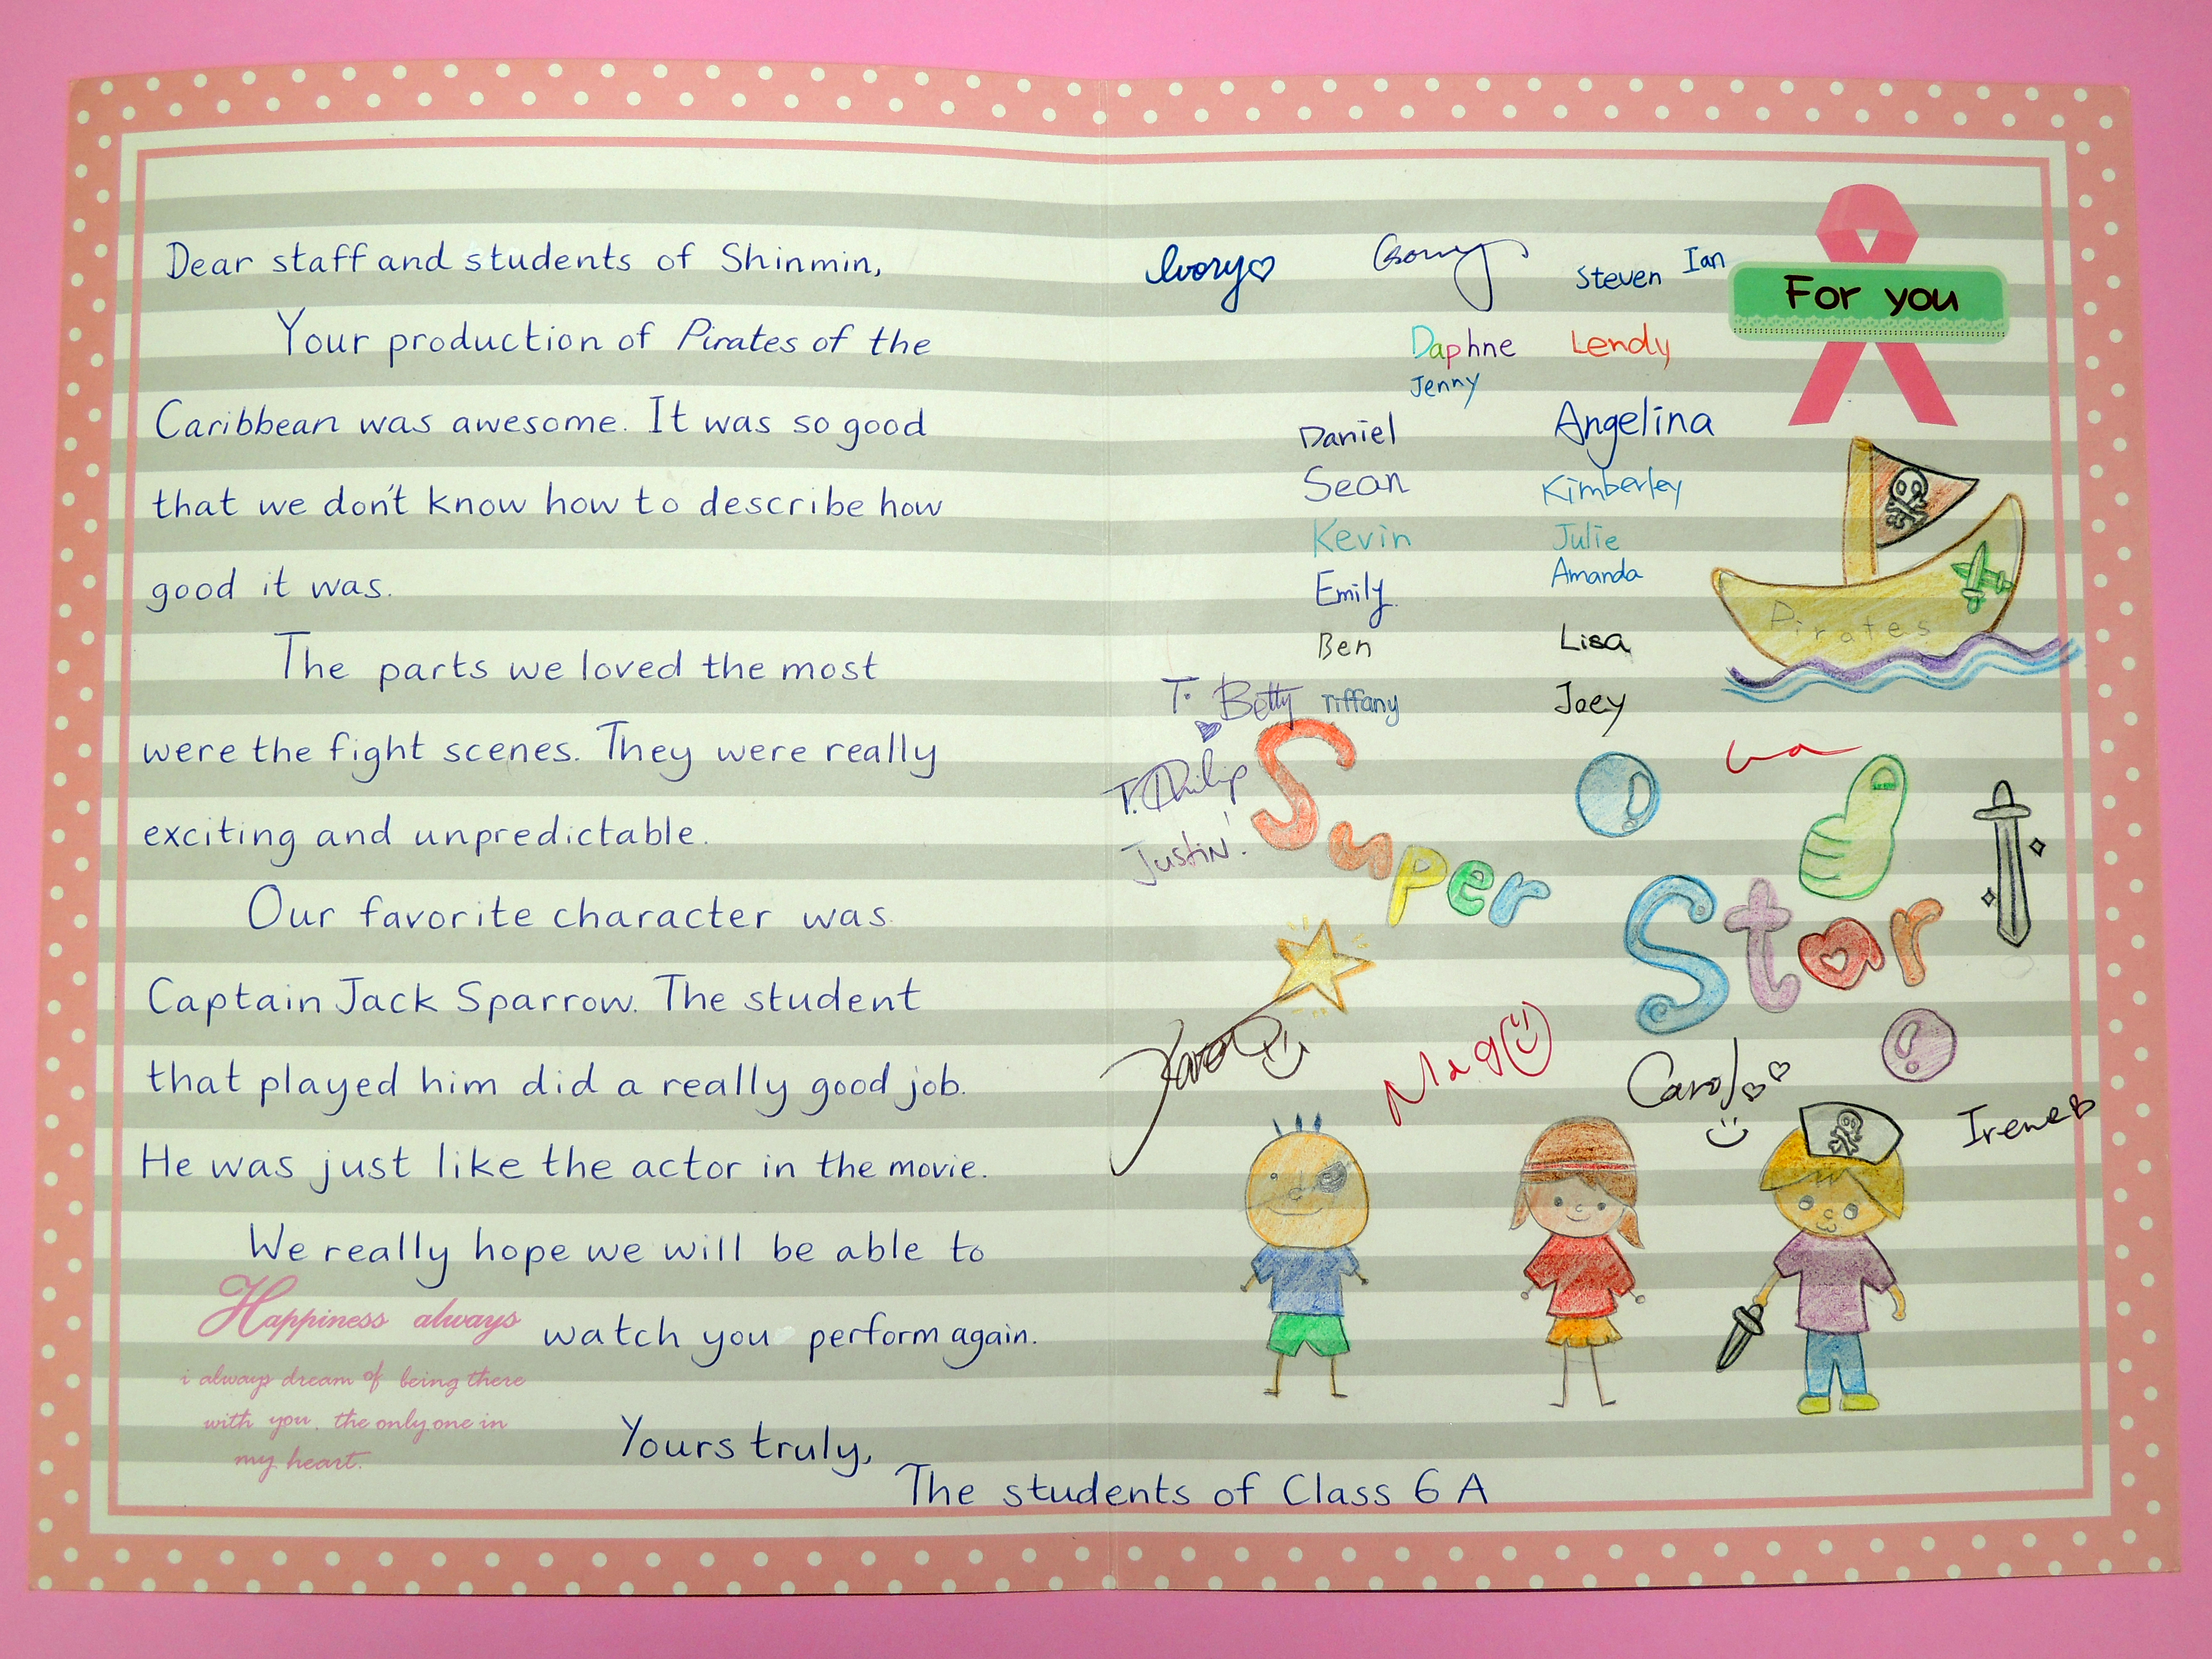 Dear staff and students of Shinmin,
Your production of Pirates of the
Caribbean was awesome. It was so good
that we don't know how to describe how
good it was.
The parts we loved the most
were the fight scenes. They were really
exciting and unpredictable.
Our favorite character was
Captain Jack Sparrow. The student
that played him did a really good job.
He was just like the actor in the movie.
We really hope we will be able to
watch you perform again.
Happiness always
i always dream of being there
with you. the only one in
my heart.
Yours truly,
The students of Class 6 A
Ivory
Steven
Ian
For you
Daphne
Lendy
Jenny
Daniel
Angelina
Sean
Kimberley
Kevin
Julie
Emily
Amanda
Pirates
Ben
Lisa
T. Betty
Tiffany
Joey
T. Philip
Justin!
Super
Star
Mag
Carol
Irene